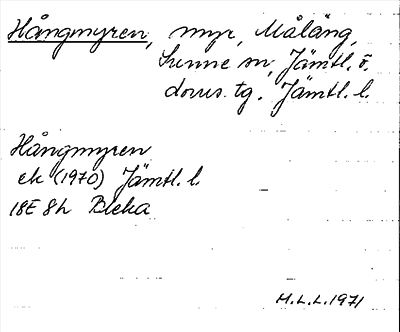 Hångmyren, myr, Måläng,
Sunne sn, Jämtl. ö.
doms. tg. Jämtl. l.
Hångmyren
ek (1970) Jämtl. l.
18E 8h Bleka
M.L.L. 1971